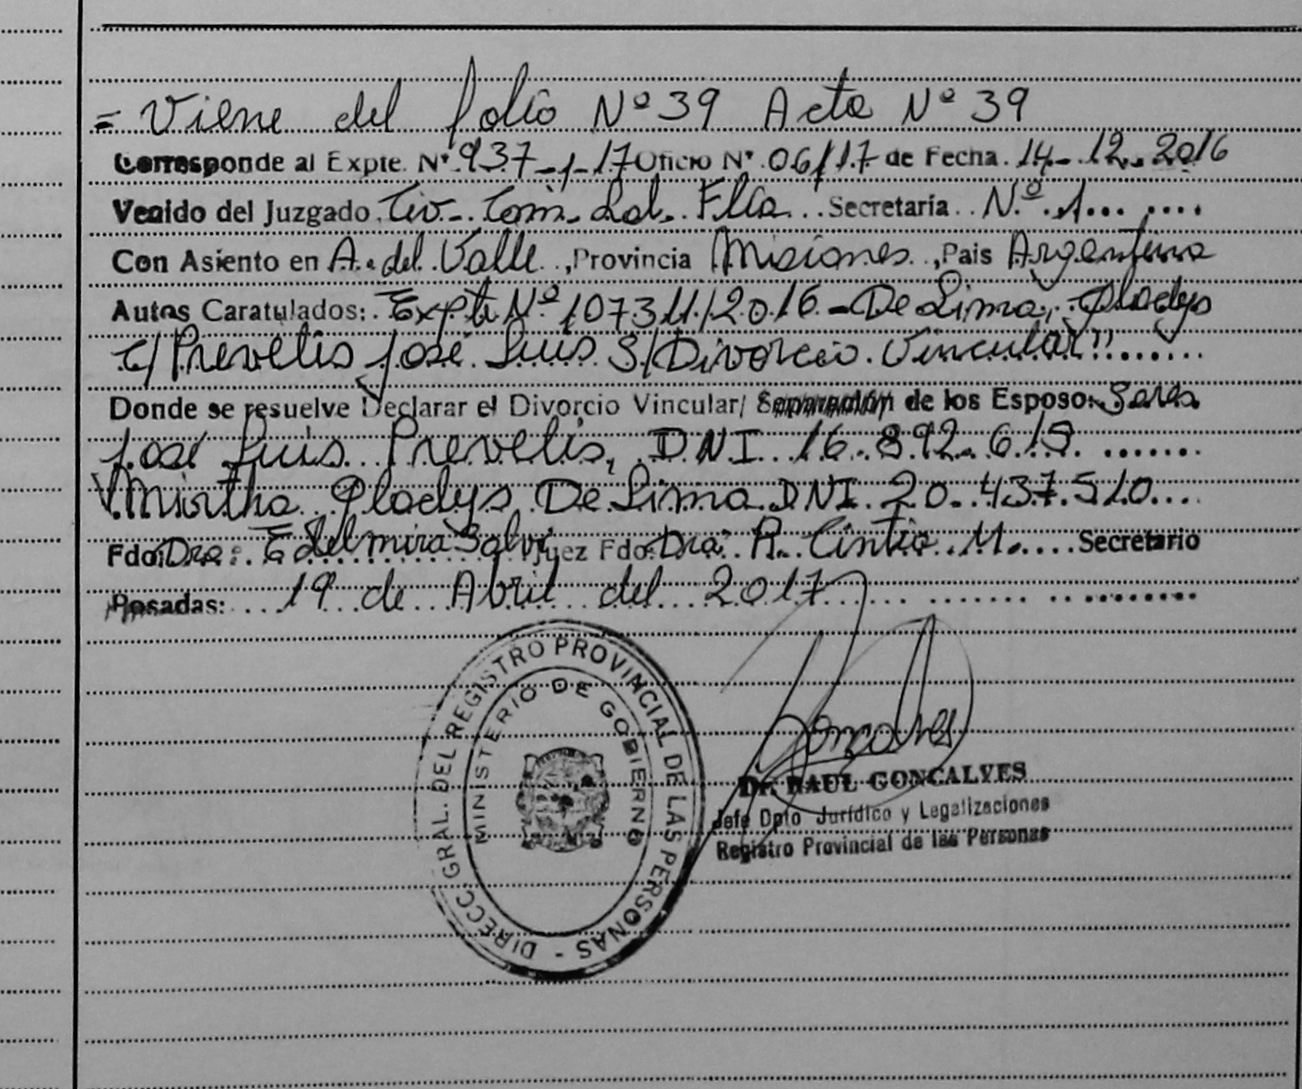 = Viene del folio Nº 39 Acta Nº 39
Corresponde al Expte. Nº 937-1-17 Oficio Nº 06/17 de Fecha 14-12-2016
Venido del Juzgado Civ. Com. Lab. Flia Secretaria Nº 1
Con Asiento en A. del Valle, Provincia Misiones, Pais Argentina
Autos Caratulados: Expte Nº 107311/2016 - De Lima, Gladys
c/ Prevelis José Luis S/ Divorcio Vincular"
Donde se resuelve Declarar el Divorcio Vincular/ Separación de los Esposos Sres.
José Luis Prevelis, DNI 16.892.615
Mirtha Gladys De Lima DNI 20.437.510
Fdo: Dra: Edelmira Salvi Juez Fdo: Dra: R. Cintia M. Secretario
Posadas: 19 de Abril del 2017
DIRECC. GRAL. DEL REGISTRO PROVINCIAL DE LAS PERSONAS -
MINISTERIO DE GOBIERNO
Goncalves
Dr. RAUL GONCALVES
Jefe Dpto Jurídico y Legalizaciones
Registro Provincial de las Personas